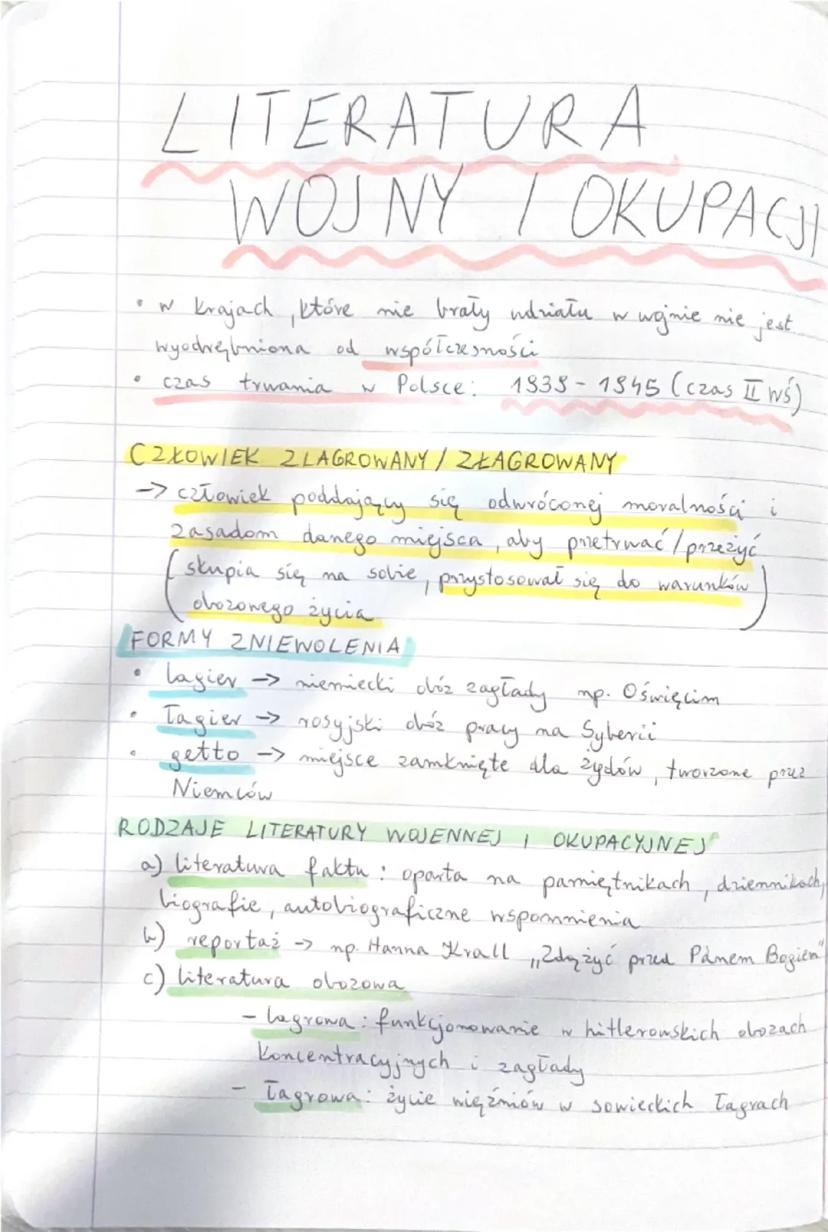 LITERATURA
WOJNY I OKUPACJI
• w krajach, które nie brały udziału w wojnie nie jest
wyodrębniona od współczesności
• czas trwania w Polsce: 1939 - 1945 (czas II WŚ)
CZŁOWIEK ZLAGROWANY / ZŁAGROWANY
→ człowiek poddający się odwróconej moralności i
zasadom danego miejsca, aby przetrwać / przeżyć
(skupia się na sobie, przystosował się do warunków
obozowego życia)
FORMY ZNIEWOLENIA
• lagier → niemiecki obóz zagłady np. Oświęcim
• łagier → rosyjski obóz pracy na Syberii
• getto → miejsce zamknięte dla żydów, tworzone przez
Niemców
RODZAJE LITERATURY WOJENNEJ I OKUPACYJNEJ
a) literatura faktu: oparta na pamiętnikach, dziennikach,
biografie, autobiograficzne wspomnienia
b) reportaż → np. Hanna Krall „Zdążyć przed Panem Bogiem"
c) literatura obozowa
- lagrowa: funkcjonowanie w hitlerowskich obozach
koncentracyjnych i zagłady
- łagrowa: życie więźniów w sowieckich łagrach